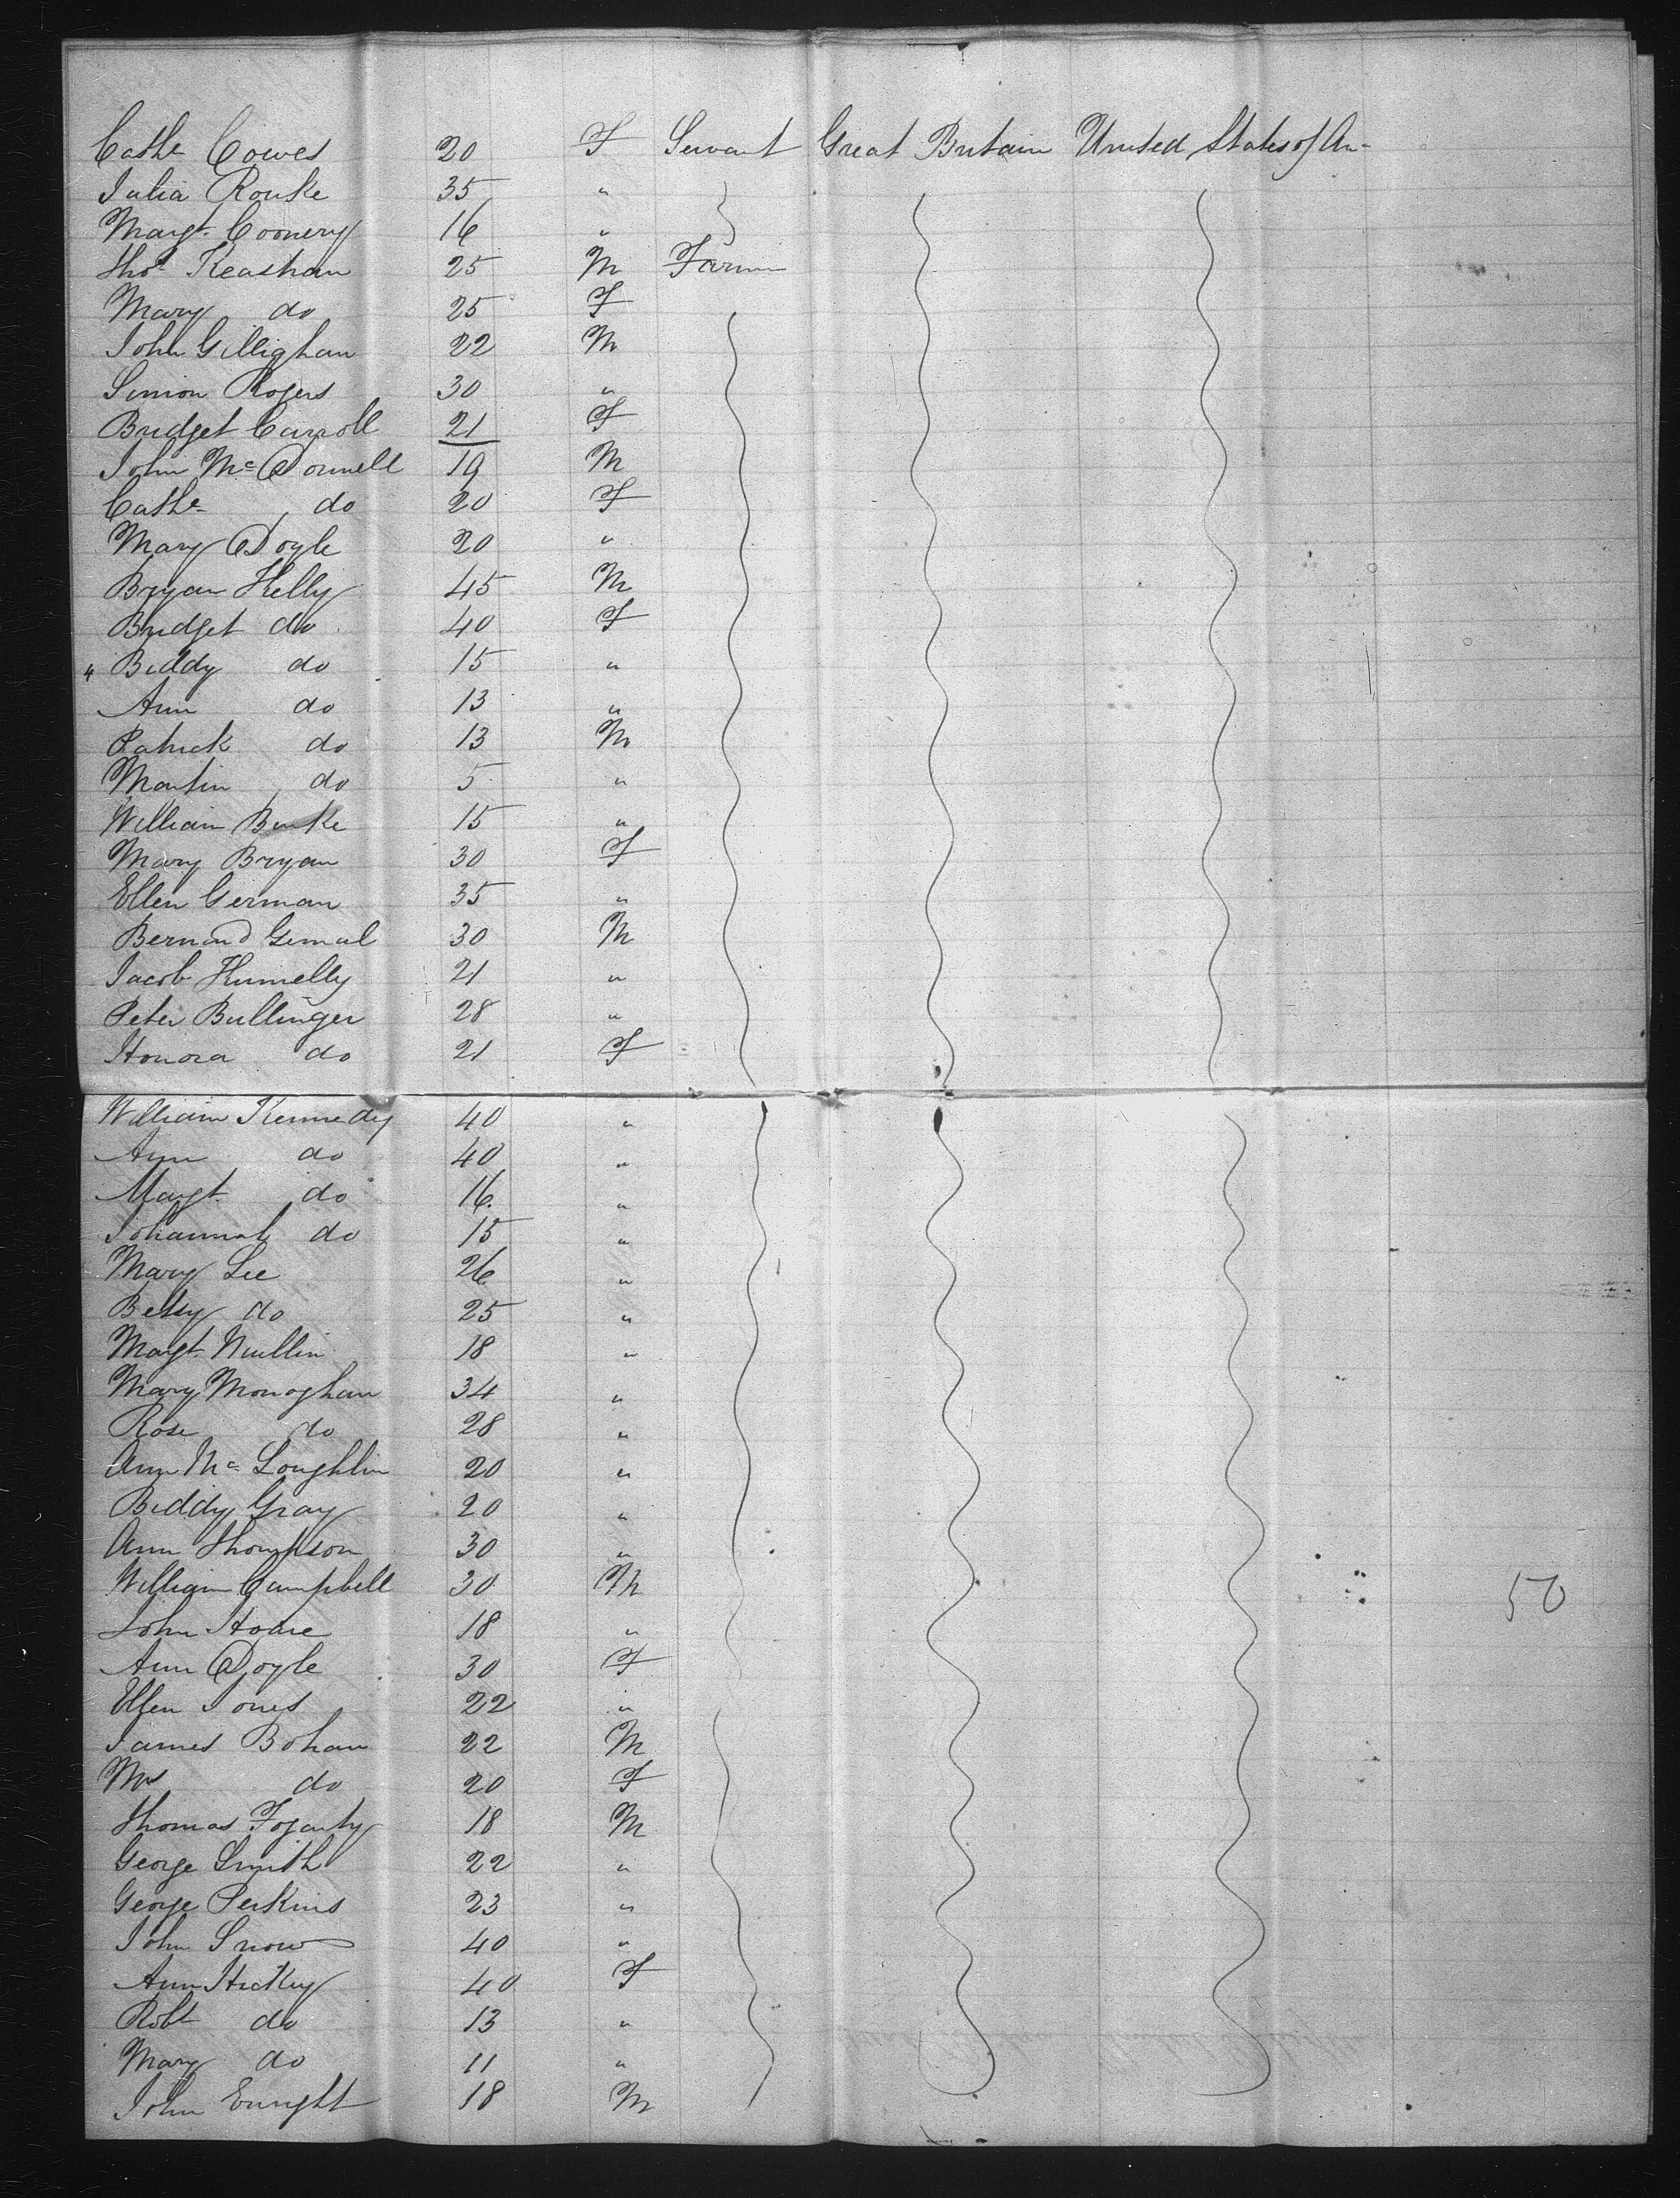 Cathe Cowes 20 F Servant Great Britain United States of Am-
Julia Rourke 35 "
Margt. Coonery 16 "
Thos Keashan 25 M Farmer
Mary do 25 F
John Gillighan 22 M
Simon Rogers 30 "
Bridget Carroll 21 F
John McDonnell 19 M
Cathe do 20 F
Mary Doyle 20 "
Bryan Kelly 45 M
Bridget do 40 F
" Biddy do 15 "
Ann do 13 "
Patrick do 13 M
Martin do 5 "
William Burke 15 "
Mary Bryan 30 F
Ellen German 35 "
Bernard 30 M
Jacob 21 "
Peter Bullinger 28 "
Honora do 21 F
William Kennedy 40 "
Ann do 40 "
Margt. do 16 "
Johannah do 15 "
Mary Lee 26 "
Betsy do 25 "
Margt. Mullin 18 "
Mary Monoghan 34 "
Rose do 28 "
Ann Mc Loughlin 20 "
Biddy Gray 20 "
Ann Thompson 30 "
William Campbell 30 M 50
John Hoare 18 "
Ann Doyle 30 F
Ellen Jones 22 "
James Bohan 22 M
Mrs do 20 F
Thomas Fogarty 18 M
George Smith 22 "
George Perkins 23 "
John Snow 40 "
Ann Hickey 40 F
Robt do 13 "
Mary do 11 "
John Enright 18 M